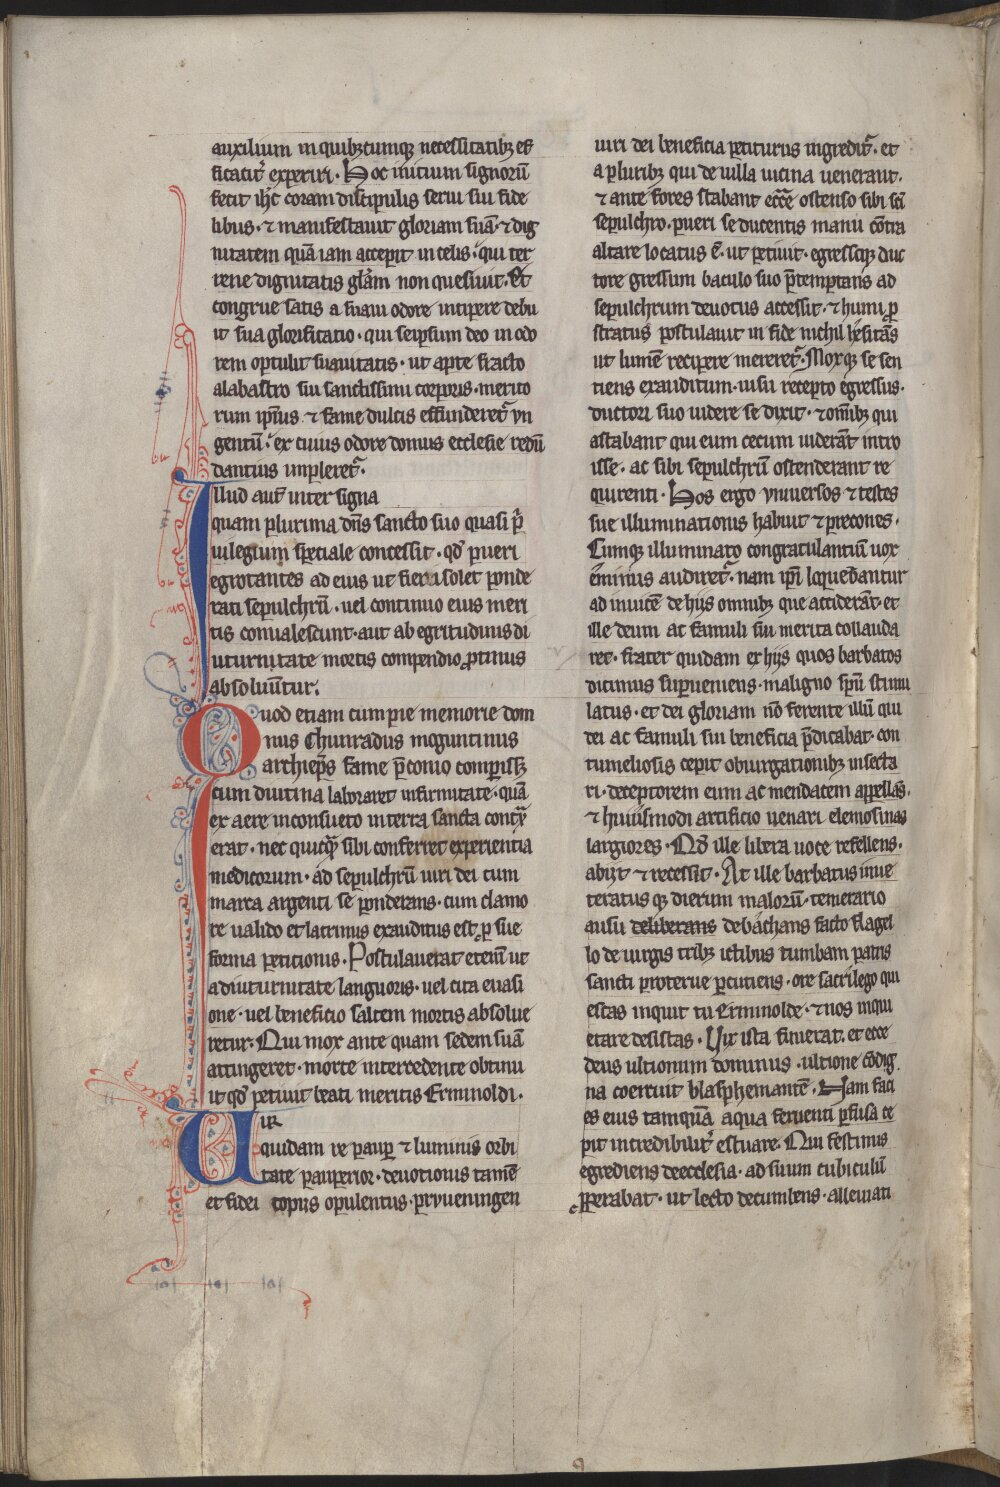 auxilium in quibꝫcumqꝫ necessitatibꝫ ef
ficacit᷑ experiri. Hoc inicium signorū
fecit ih̅c coram discipulis serui sui fide
libus. ⁊ manifestauit gloriam suā. ⁊ dig
nitatem quā iam accepit in celis. qui ter
rene dignitatis gl̅am non quesiuit. Et
congrue satis a suaui odore incipere debu
it sua glorificatio. qui seipsum deo in odo
rem optulit suauitatis. ut aperte fracto
alabastro sui sanctissimi corporis. merito
rum ip̅ius ⁊ fame dulcis effunderet᷑ vn
gentū. ex cuius odore domus ecclesie redū
dantius impleret᷑.
Illud aut̅ inter signa
quam plurima dn̅s sancto suo quasi p̅
uilegium speciale concessit. qd̅ pueri
egrotantes ad eius ut fieri solet ponde
rati sepulchrū. uel continuo eius meri
tis conualescunt. aut ab egritudinis di
uturnitate mortis compendio ꝓtinus
absoluūtur.
Quod etiam cum pie memorie dom
inus Chunradus moguntinus
archiep̅s fame p̅conio comperissꝫ
cum diutina laboraret infirmitate. quā
ex aere inconsueto in terra sancta cont͛x
erat. nec quicq̅ sibi conferret experientia
medicorum. ad sepulchrū uiri dei cum
marca argenti se ponderans. cum clamo
re ualido et lacrimis exauditus est. ꝓ sue
forma peticionis. Postulauerat etenī ut
a diuturnitate languoris. uel cita euasi
one. uel beneficio saltem mortis absolue
retur. Qui mox ante quam sedem suā
attingeret. morte intercedente obtinu
it qd̅ petiuit beati meritis Erminoldi.
Uir
quidam re pauꝑ ⁊ luminis orbi
tate pauperior. deuotionis tamē
et fidei copijs opulentus. peruenīngen
uiri dei beneficia petiturus ingredit᷑. et
a pluribꝫ qui de uilla uicina uenerant.
⁊ ante fores stabant ecc̅e ostenso sibi sc̅i
sepulchro. pueri se ducentis manu cōtra
altare locatus ē. ut petiuit. egressoqꝫ duc
tore gressum baculo suo p̅temptans ad
sepulchrum deuotus accessit. ⁊ humi ꝓ
stratus postulauit in fide nichil hesitās
ut lumē recipere mereret᷑. Moxqꝫ se sen
tiens exauditum. uisu recepto egressus.
ductori suo uidere se dixit. ⁊ om̅ibꝫ qui
astabant qui eum cecum uiderāt intro
isse. ac sibi sepulchrū ostenderant re
quirenti. Hos ergo vniuersos ⁊ testes
sue illuminationis habuit ⁊ precones.
Cumqꝫ illuminato congratulantiū uox
e̅minus audiret᷑. nam ip̅i loquebantur
ad inuicē de hijs omnibꝫ que acciderāt. et
ille deum ac famuli sui merita collauda
ret. frater quidam ex hijs quos barbatos
dicimus superueniens. maligno sp̅u stimu
latus. et dei gloriam nō ferente illū qui
dei ac famuli sui beneficia p̅dicabat. con
tumeliosis cepit obiurgationibꝫ insecta
ri. deceptorem eum ac mendacem appellās.
⁊ huiusmodi artificio uenari elemosinas
largiores. Qd̅ ille libera uoce refellens.
abijt ⁊ recessit. At ille barbatus inue
teratus qꝫ dierum malorū. temerario
ausu deliberans debachans facto flagel
lo de uirgis tribꝫ ictibus tumbam patris
sancti proterue percutiens. ore sacrilego qui
escas inquit tu Erminolde. ⁊ nos inqui
etare desistas. Vix ista finierat. et ecce
deus ultionum dominus. ultione cōdig
na coercuit blasphemantē. Nam faci
es eius tamquā aqua feruenti ꝑfusa ce
pit incredibilit᷑ estuare. Qui festinus
egrediens de ecclesia. ad suum cubiculū
properabat. ut lecto decumbens. alleuiati